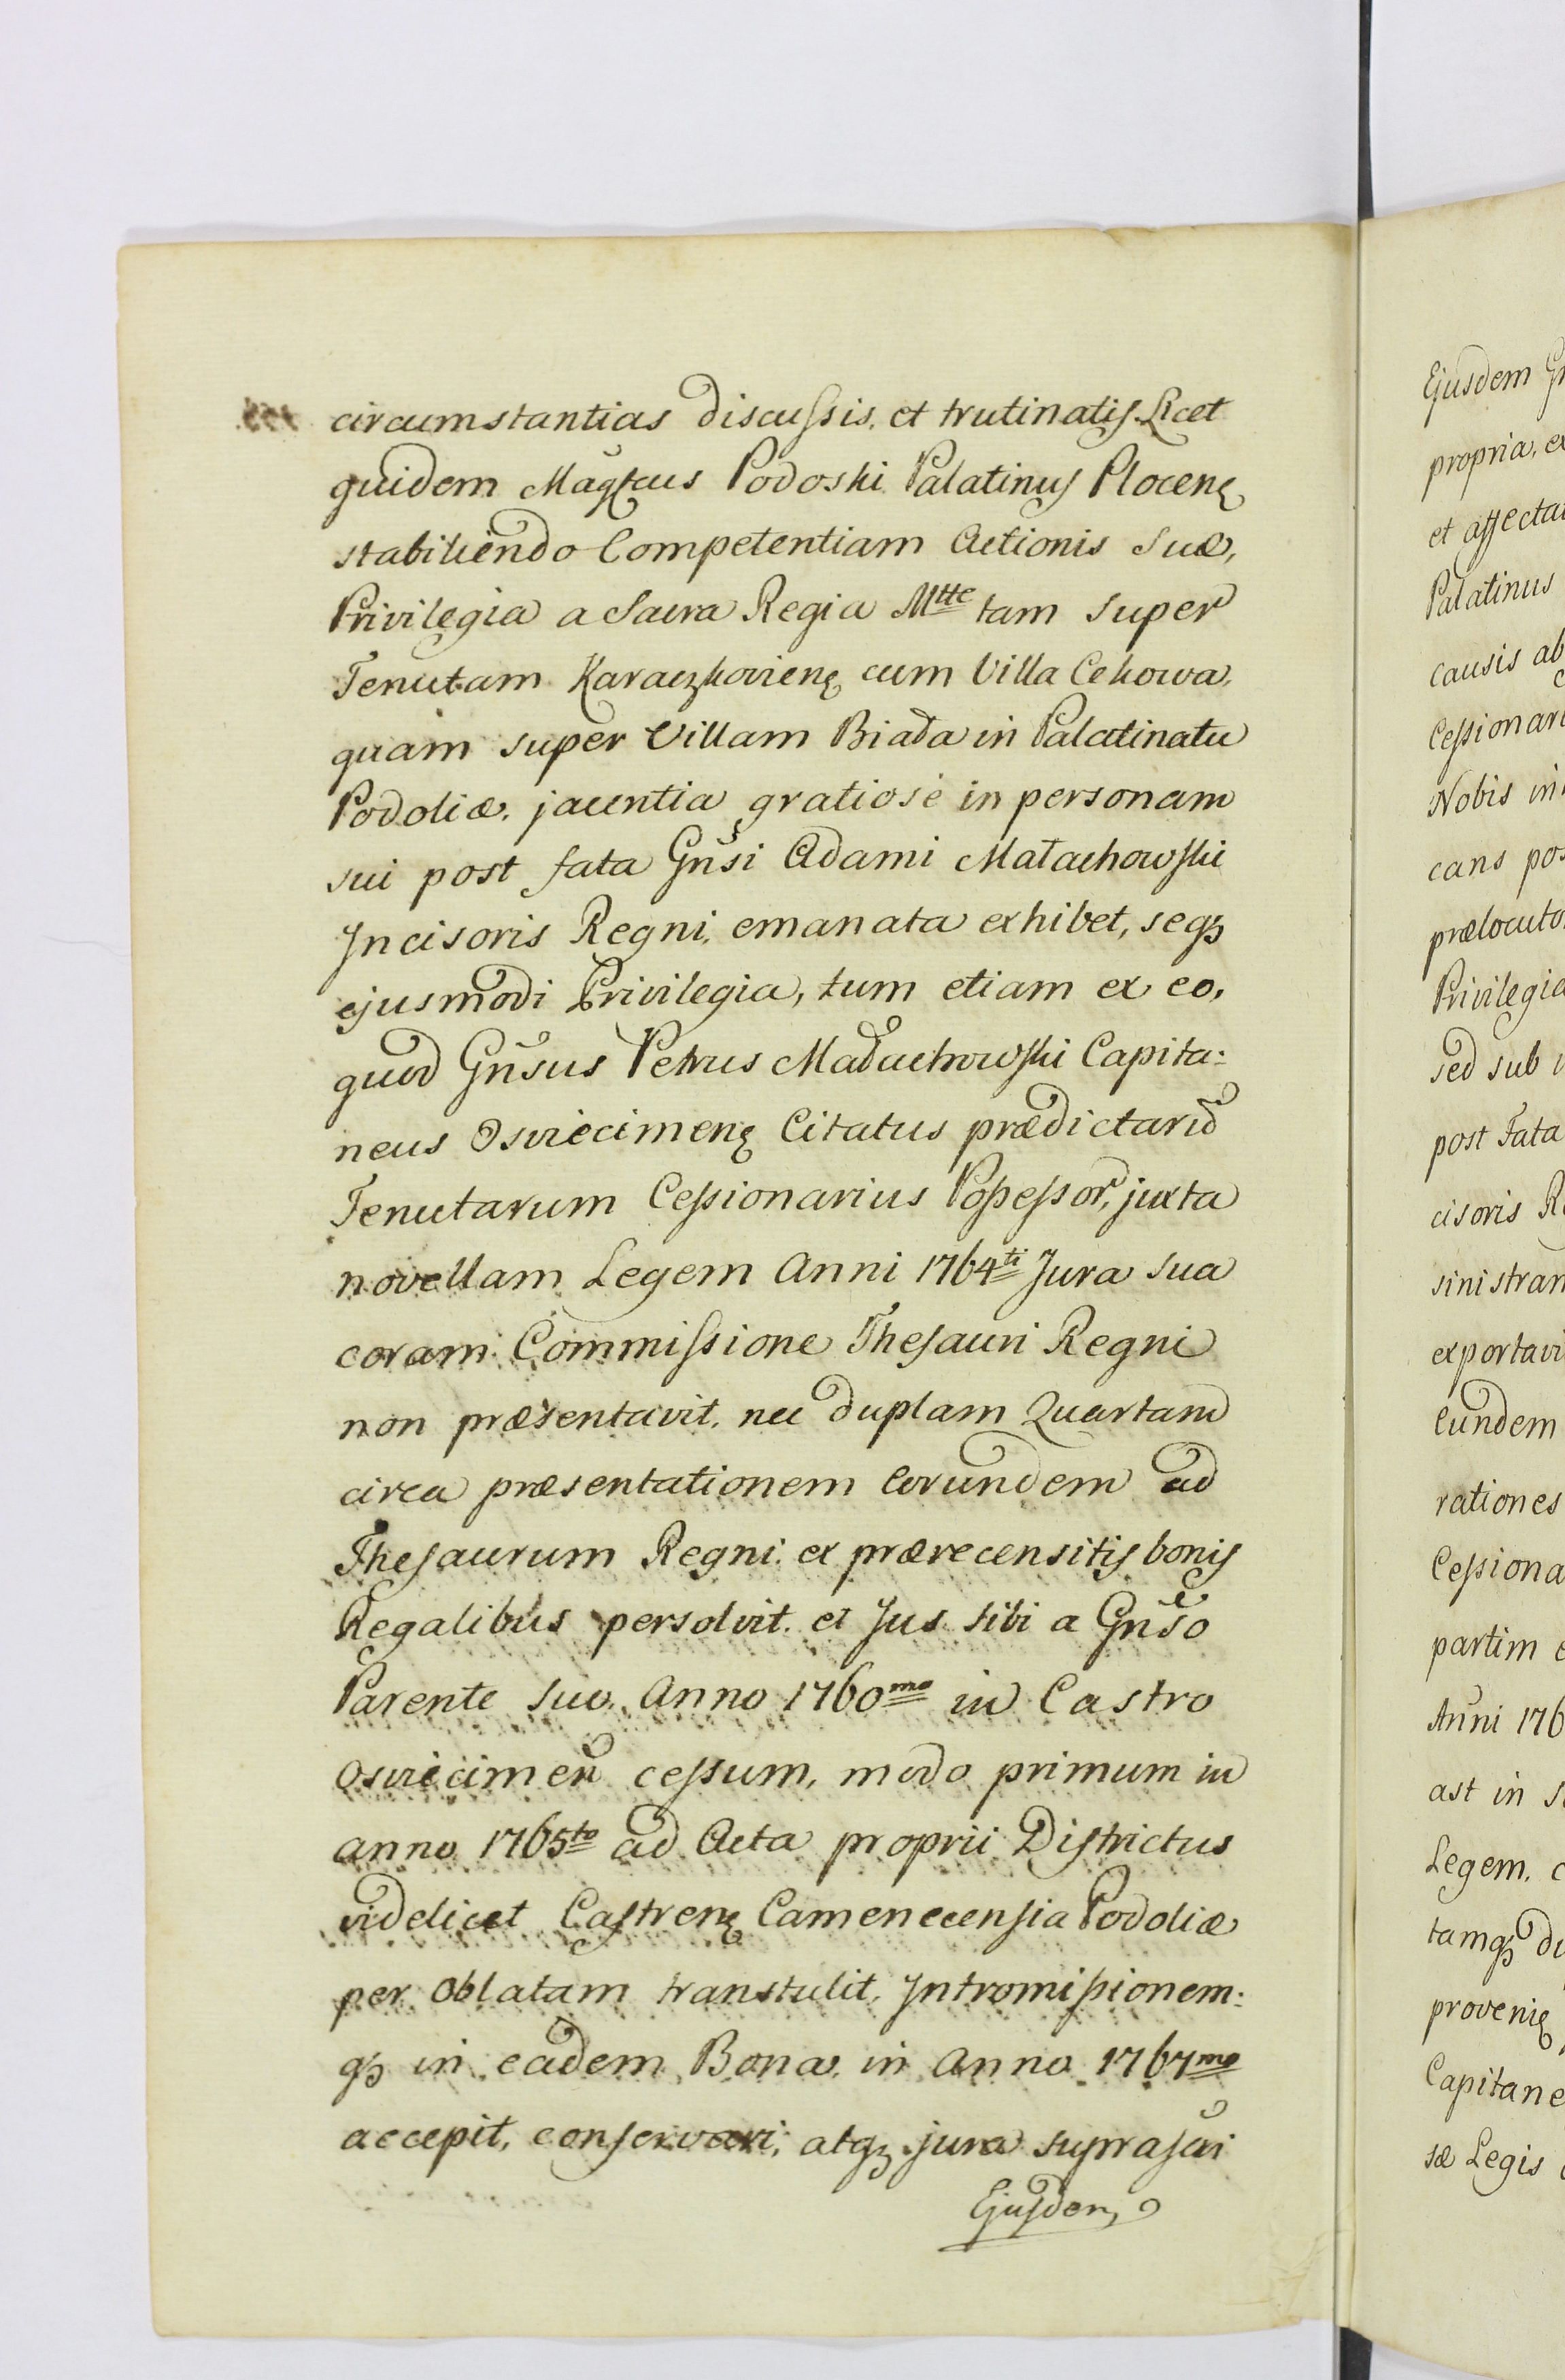 circumstantias discussis, et trutinatis. Licet
quidem Magfcus Podoski Palatinus Plocenę
stabiliendo Competentiam Actionis Suæ,
Privilegia a Sacra Regia Mtte tam super
Tenutam Karaczkovienę cum Villa Cekowa,
quam super Villam Biała in Palatinatu
Podoliæ, jacentia gratiose in personam
sui post fata Gñsi Adami Małachowski
Incisoris Regni, emanata exhibet, seqȝ
ejusmodi Privilegia, tum etiam ex eo,
quod Gñsus Petrus Małachowski Capita:
neus Osviecimenę Citatus prædictarũ
Tenutarum Cessionarius Possessor, juxta
novellam Legem Anni 1764ti Jura sua
coram Commissione Thesauri Regni
non præsentavit, nec duplam Quartam
circa præsentationem Eorundem ad
Thesaurum Regni, ex prærecensitis bonis
Regalibus persolvit, et Jus sibi a Gñso
Parente suo, Anno 1760mo in Castro
Osviecimen̄ cessum, modo primum in
anno 1765to ad Acta proprii Districtus
videlicet Castrenę Camenecensia Podoliæ
per Oblatam transtulit, Intromissionem:
qȝ in eadem Bona, in Anno 1767mo
accepit, conservari, atqȝ jura
Ejusdem
Ejusdem
propria, ex
et affecta
Palatinus
causis ab
Cessionari
Nobis in
cans pos
prælocuto
Privilegia
sed sub
post Fata
cisoris R
sinistram
exportavi
Eundem
rationes
Cessiona
partim e
Anni 176
ast in s
Legem, c
tamqȝ du
provenię
Capitane
sæ Legis